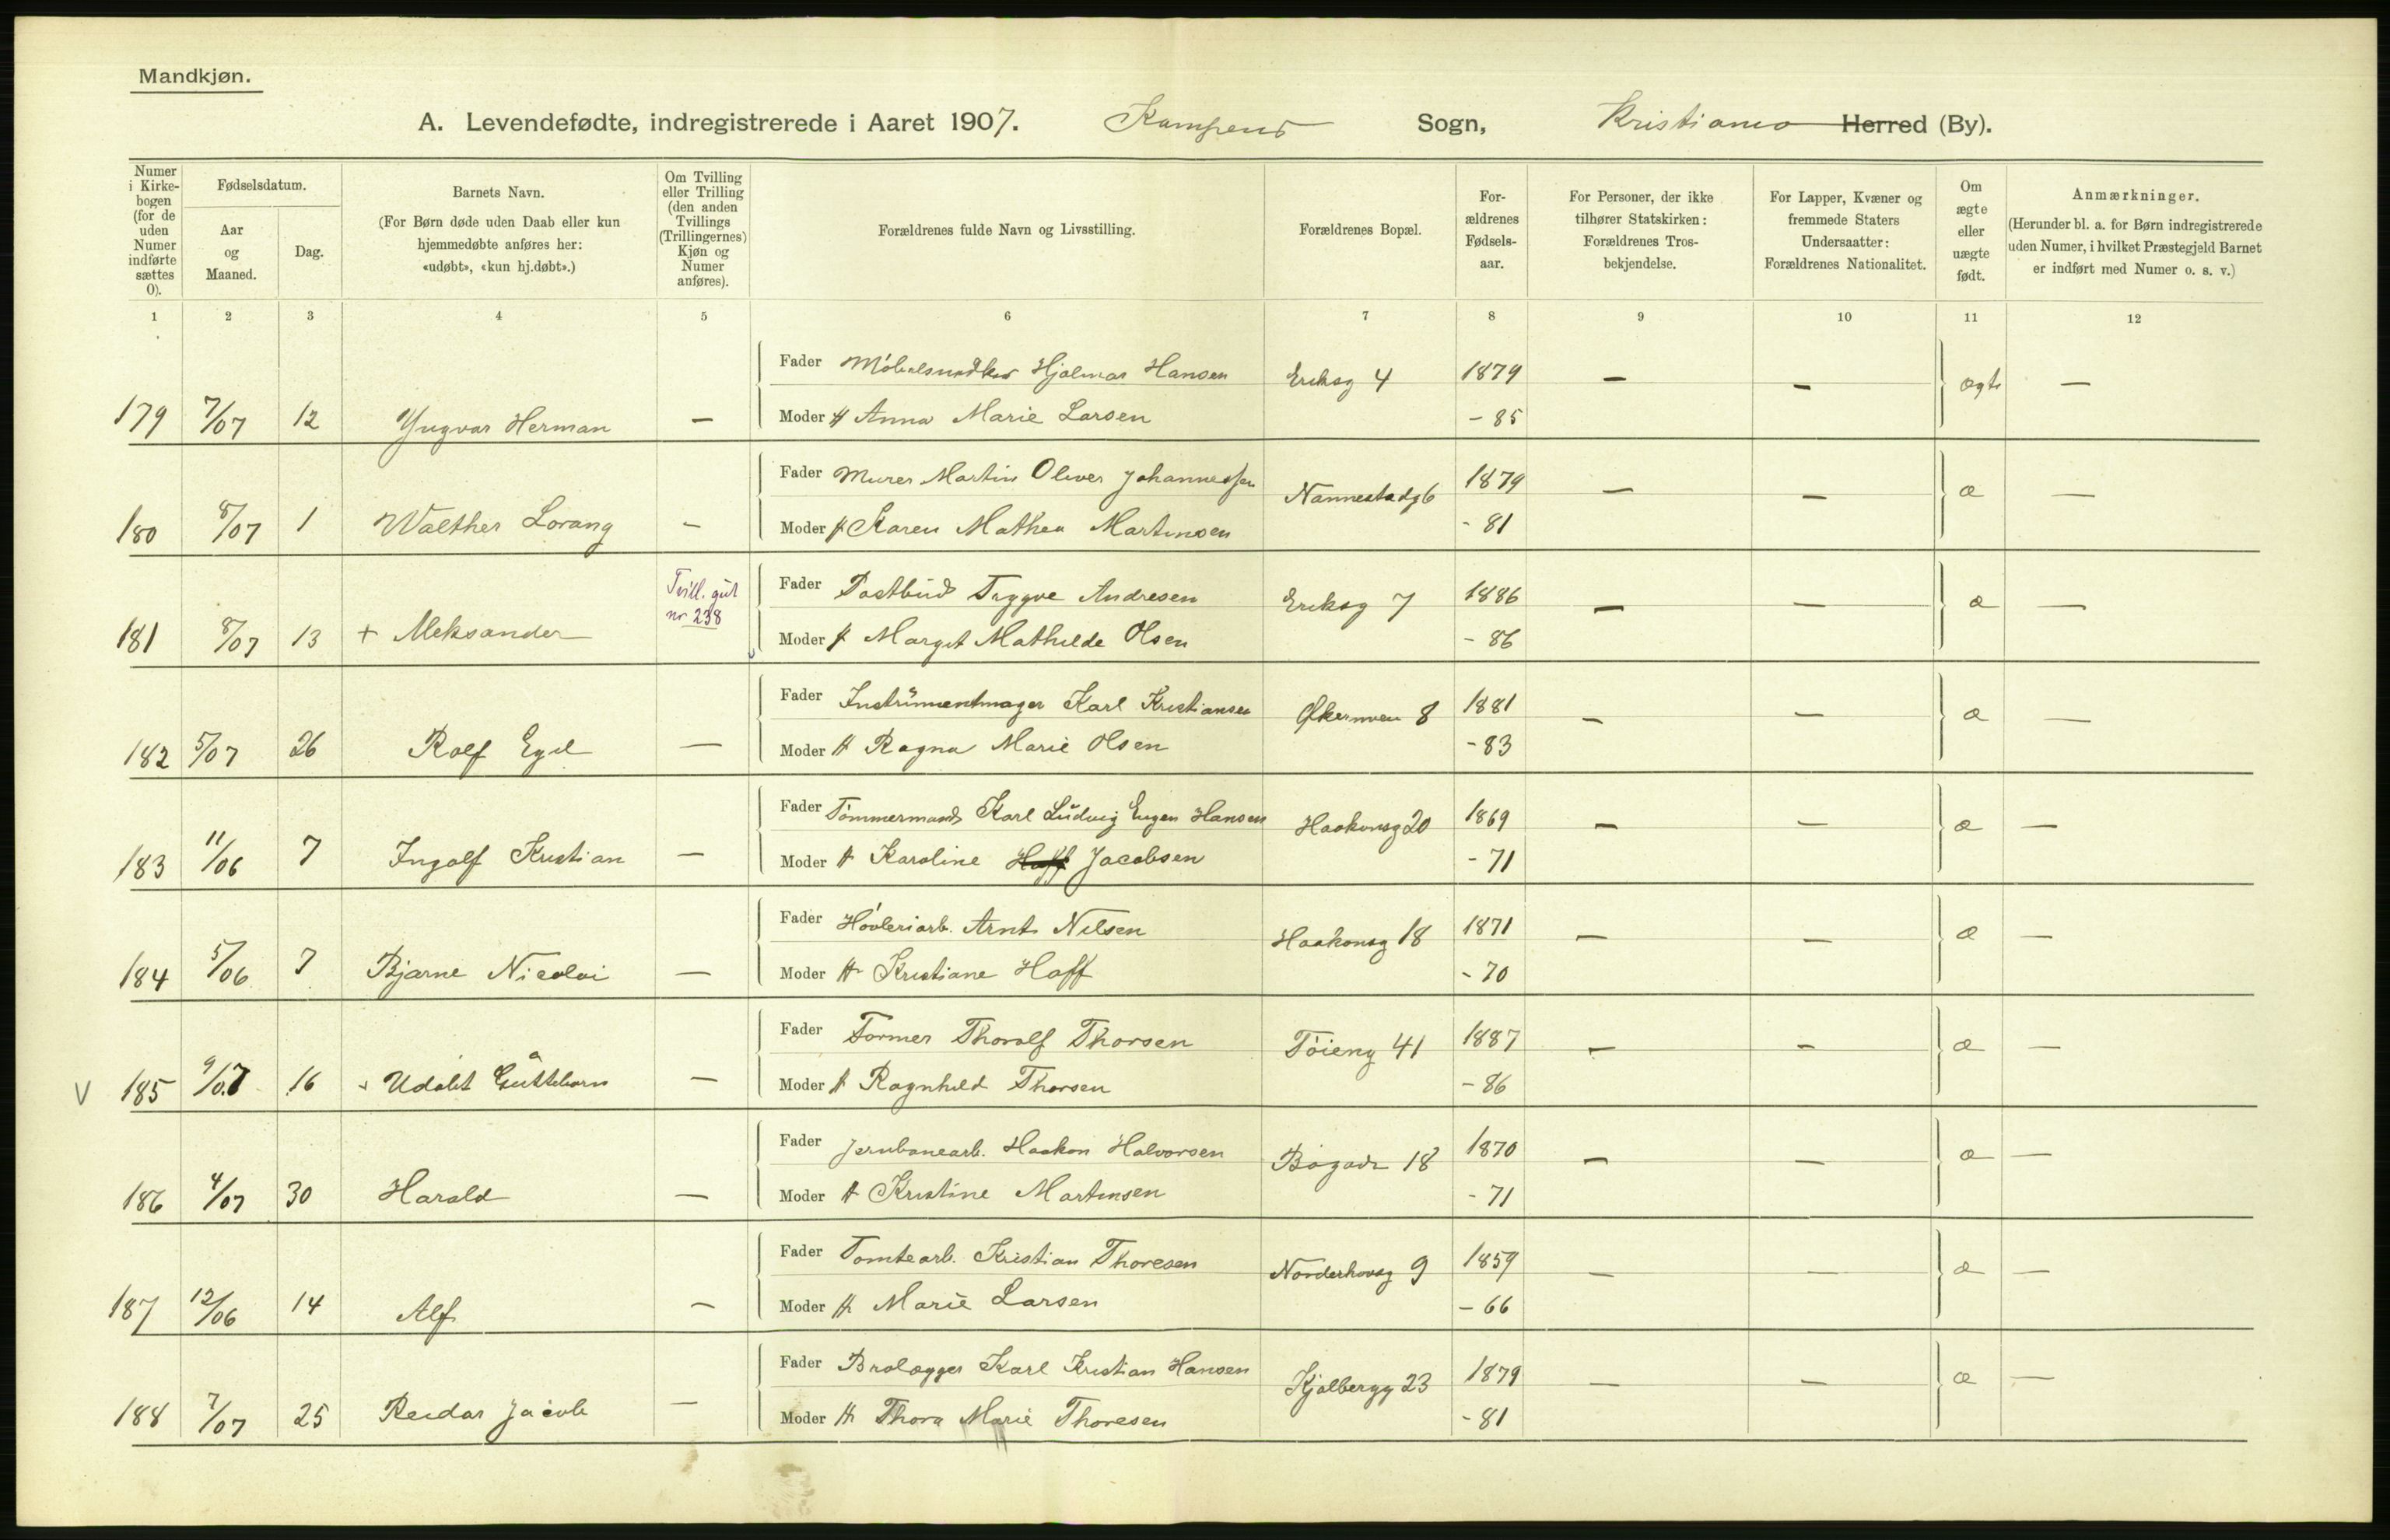 Mandkjøn.
A. Levendefødte, indregistrerede i Aaret 1907. Kampens Sogn, Kristiania Herred (By).
Numer i Kirke-bogen (for de uden Numer indførte sættes 0).
Fødselsdatum.
Aar og Maaned.
Dag.
Barnets Navn.
(For Børn døde uden Daab eller kun hjemmedøbte anføres her: «udøbt», «kun hj.døbt».)
Om Tvilling eller Trilling (den anden Tvillings (Trillingernes) Kjøn og Numer anføres).
Forældrenes fulde Navn og Livsstilling.
Forældrenes Bopæl.
For-ældrenes Fødsels-aar.
For Personer, der ikke tilhører Statskirken: Forældrenes Tros-bekjendelse.
For Lapper, Kvæner og fremmede Staters Undersaatter: Forældrenes Nationalitet.
Om ægte eller uægte født.
Anmærkninger.
(Herunder bl. a. for Børn indregistrerede uden Numer, i hvilket Præstegjeld Barnet er indført med Numer o. s. v.)
1 2 3 4 5 6 7 8 9 10 11 12
Fader Möbelsnedker Hjalmar Hansen Eriksg 4 1879 — — ægte —
179 7/07 12 Yngvar Herman — Moder H Anna Marie Larsen - 85
Fader Murer Martin Oliver Johannessen Nannestadg 6 1879 — — æ —
180 8/07 1 Walther Lorang — Moder H Karen Mathea Martinsen - 81
Tvill. gut nr 238
Fader Postbud Trygve Andresen Eriksg 7 1886 — — æ —
181 8/07 13 + Aleksander Moder H Margit Mathilde Olsen - 86
Fader Instrŭmentmager Karl Kristiansen Økernveien 8 1881 — — æ —
182 5/07 26 Rolf Egil — Moder H Ragna Marie Olsen - 83
Fader Tömmermand Karl Lŭdvig Eugen Hansen Haakonsg 20 1869 — — æ —
183 11/06 7 Ingolf Kristian — Moder H Karoline Hoff Jacobsen - 71
Fader Hövleriarb. Arnt Nilsen Haakonsg 18 1871 — — æ —
184 5/06 7 Bjarne Nicolai — Moder H Kristiane Hoff - 70
Fader Former Thoralf Thorsen Töieng 41 1887 — — æ —
V 185 9/07 16 + Udöbt Guttebarn — Moder H Ragnhild Thorsen - 86
Fader Jernbanearb. Haakon Halvorsen Bögade 18 1870 — — æ —
186 4/07 30 Harald — Moder H Kristine Martinsen - 71
Fader Tomtearb. Kristian Thoresen Norderhovsg 9 1859 — — æ —
187 12/06 14 Alf — Moder H Marie Larsen - 66
Fader Brolægger Karl Kristian Hansen Kjølbergg 23 1879 — — æ —
188 7/07 25 Reidar Jacob — Moder H Thora Marie Thoresen - 81